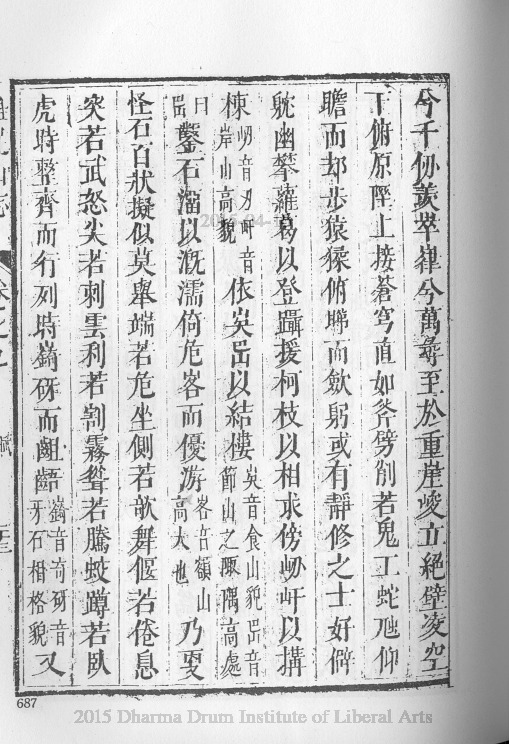 兮千仞羨翠嵂兮萬尋至於重崖峻立絕壁凌空
下俯原隰上接蒼穹直如斧劈削若鬼工蛇虺仰
瞻而却步猿猱俯睇而歛躬或有靜修之士好僻
躭幽攀蘿葛以登躡援柯枝以相求傍岉屽以搆
棟岉音刃屽音岸山高貌依㠖峊以結樓㠖音食山貌峊音節山之陬隅高處
曰峊鑿石溜以漑濡倚危峉而優游峉音額山高大也乃戛
怪石百狀擬似莫舉端若危坐側若歌舞偃若倦息
突若武怒尖若刺雲利若割霧聳若騰蛟蹲若臥
虎時整齊而行列時㟢砑而齟齬㟢音奇砑音牙石相格貌又
687
2015 Dharma Drum Institute of Liberal Arts